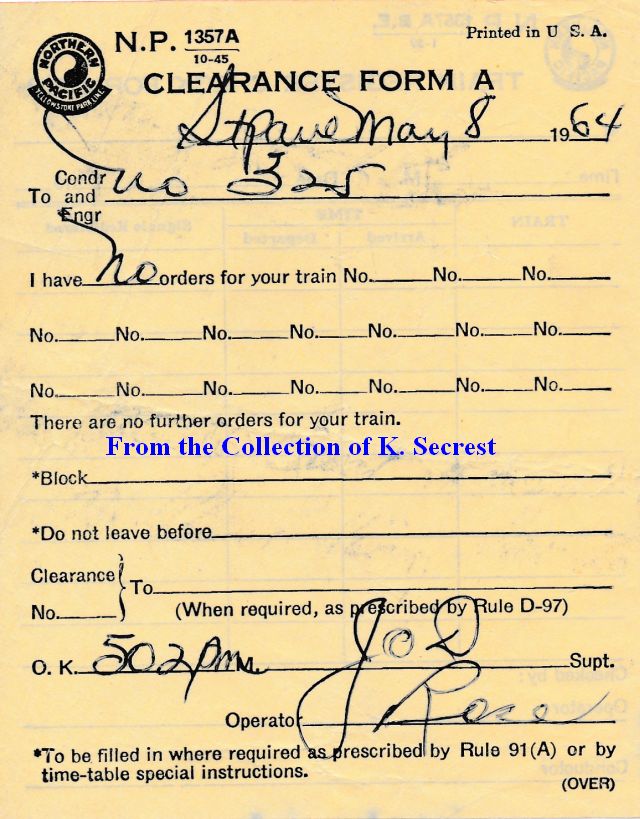 NORTHERN PACIFIC
YELLOWSTONE PARK LINE
N.P. 1357A
10-45
Printed in U S. A.
CLEARANCE FORM A
St Paul May 8 1964
To Condr and Engr No 325
I have No orders for your train No. No. No.
No. No. No. No. No. No. No.
No. No. No. No. No. No. No.
There are no further orders for your train.
From the Collection of K. Secrest
*Block
*Do not leave before
Clearance No. To
(When required, as prescribed by Rule D-97)
O. K. 502 pm M. JOD Supt.
Operator
*To be filled in where required as prescribed by Rule 91(A) or by
time-table special instructions.
(OVER)